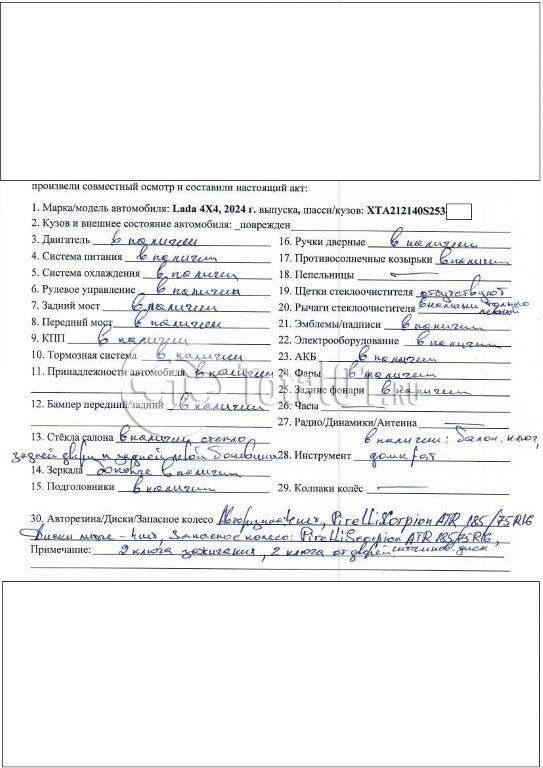 произвели совместный осмотр и составили настоящий акт:
1. Марка/модель автомобиля: Lada 4X4, 2024 г. выпуска, шасси/кузов: XTA212140S253
2. Кузов и внешнее состояние автомобиля: _поврежден
3. Двигатель в наличии
4. Система питания в наличии
5. Система охлаждения в наличии
6. Рулевое управление в наличии
7. Задний мост в наличии
8. Передний мост в наличии
9. КПП в наличии
10. Тормозная система в наличии
11. Принадлежности автомобиля в наличии
12. Бампер передний/задний в наличии
13. Стёкла салона в наличии стекло
задней двери и задней левой боковины
14. Зеркала в наличии
15. Подголовники в наличии
16. Ручки дверные в наличии
17. Противосолнечные козырьки в наличии
18. Пепельницы —
19. Щетки стеклоочистителя отсутствуют
20. Рычаги стеклоочистителя в наличии только
21. Эмблемы/надписи в наличии
22. Электрооборудование в наличии
23. АКБ в наличии
24. Фары в наличии
25. Задние фонари в наличии
26. Часы —
27. Радио/Динамики/Антенна —
в наличии: балон. ключ,
28. Инструмент домкрат
29. Колпаки колёс —
30. Авторезина/Диски/Запасное колесо Авторезина 4 шт, Pirelli Scorpion ATR 185/75R16
Диски – 4 шт, Запасное колесо: Pirelli Scorpion ATR 185/75R16,
штампов. диск
Примечание: 2 ключа зажигания, 2 ключа от дверей
TOTAL01.RU